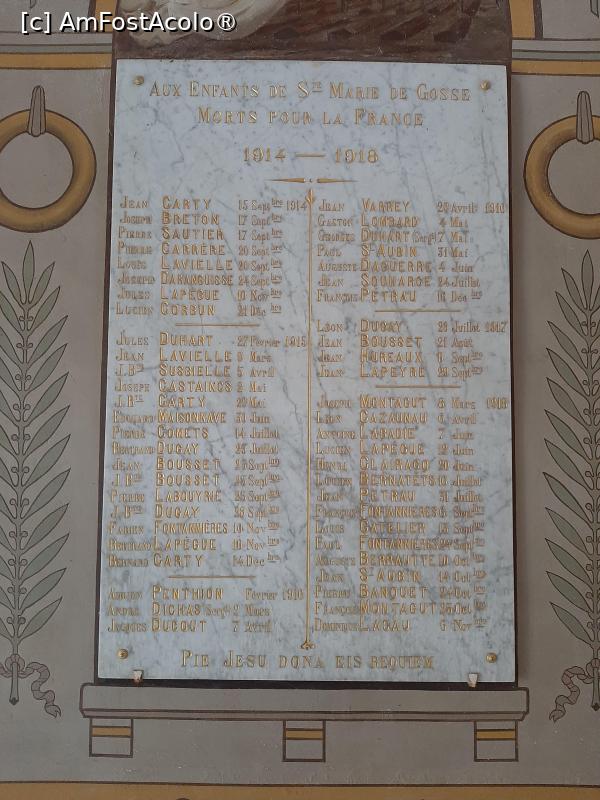 [c] AmFostAcolo®
AUX ENFANTS DE STE MARIE DE GOSSE
MORTS POUR LA FRANCE
1914 — 1918
JEAN CARTY 15 Sept bre 1914
JOSEPH BRETON 17 Sept bre
PIERRE SAUTIER 17 Sept bre
PIERRE CARRÈRE 20 Sept bre
LOUIS LAVIELLE 20 Sept bre
JOSEPH DARANGUISSE 24 Sept bre
JULES LAPÈGUE 10 Nov bre
LUCIEN CORBUN 21 Déc bre
JULES DUHART 27 Février 1915
JEAN LAVIELLE 9 Mars
J.BTE SUSBIELLE 5 Avril
JOSEPH CASTAINGS 2 Mai
J.BTE CARTY 29 Mai
MAISONNAVE Juin
PIERRE COMETS 14 Juillet
BERTRAND DUGAY Juillet
JEAN BOUSSET Sept bre
J.BTE BOUSSET 25 Sept bre
PIERRE LABOUYRIE 25 Sept bre
J.BTE DUGAY Sept bre
FABIEN FONTANNIÈRES 10 Nov bre
BERTRAND LAPÈGUE Nov bre
BERNARD CARTY 14 Déc bre
PENTHION Février 1916
ANDRÉ DICHAS Sergt 2 Mars
JACQUES DUCOUT 7 Avril
JEAN VARREY Avril 1916
GASTON LOMBARD 4 Mai
GEORGES DUHART Sergt 7 Mai
PAUL ST AUBIN 31 Mai
AUGUSTE DAGUERRE 4 Juin
JEAN SOUHARCE 24 Juillet
FRANÇOIS PETRAU 16 Déc bre
LÉON DUGAY Juillet 1917
JEAN BOUSSET 21 Août
JEAN HUREAUX Sept bre
JEAN LAPEYRE Sept bre
JOSEPH MONTAGUT 8 Mars 1918
LÉON CAZAUNAU 6 Avril
ANTOINE LABADIE 7 Juin
LUCIEN LAPÈGUE 12 Juin
HENRI CLAIRACQ 20 Juin
BERNATETS 10 Juillet
JEAN PETRAU Juillet
FRANÇOIS FONTANNIÈRES Sept bre
LOUIS GATELIER 15 Sept bre
PAUL FONTANNIÈRES Sept bre
AUGUSTE BERNAUTTE Oct bre
JEAN ST AUBIN 14 Oct bre
PIERRE BANQUET 24 Oct bre
FRANÇOIS MONTAGUT Oct bre
DOMINIQUE LAGAU 6 Nov bre
PIE JESU DONA EIS REQUIEM